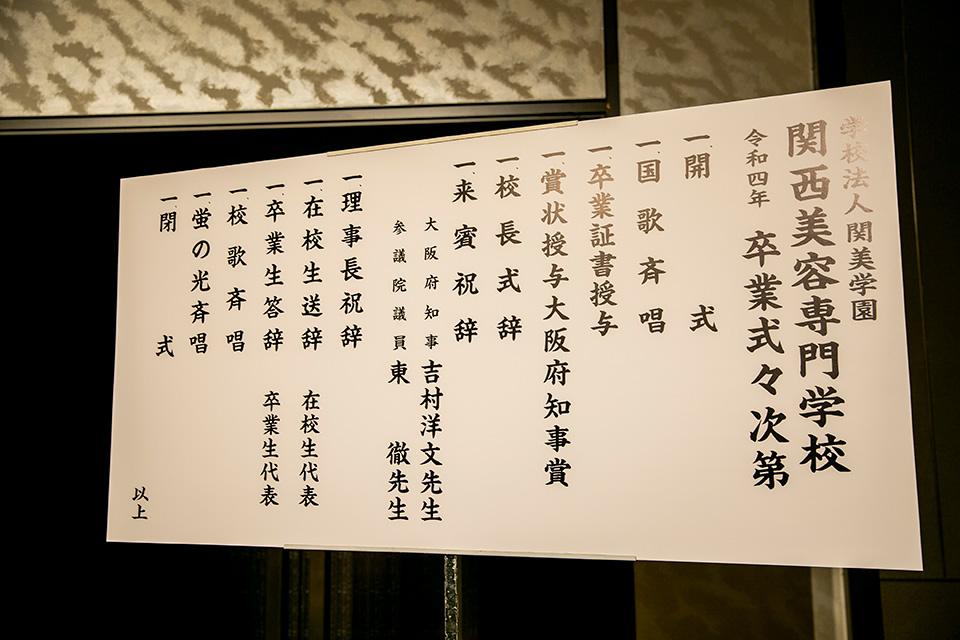 学校法人関美学園
関西美容専門学校
令和四年 卒業式々次第
一、開 式
一、国歌斉唱
一、卒業証書授与
一、賞状授与大阪府知事賞
一、校長式辞
一、来賓祝辞
大阪府知事 吉村洋文先生
参議院議員 東 徹先生
一、理事長祝辞
一、在校生送辞 在校生代表
一、卒業生答辞 卒業生代表
一、校歌斉唱
一、蛍の光斉唱
一、閉 式
以上